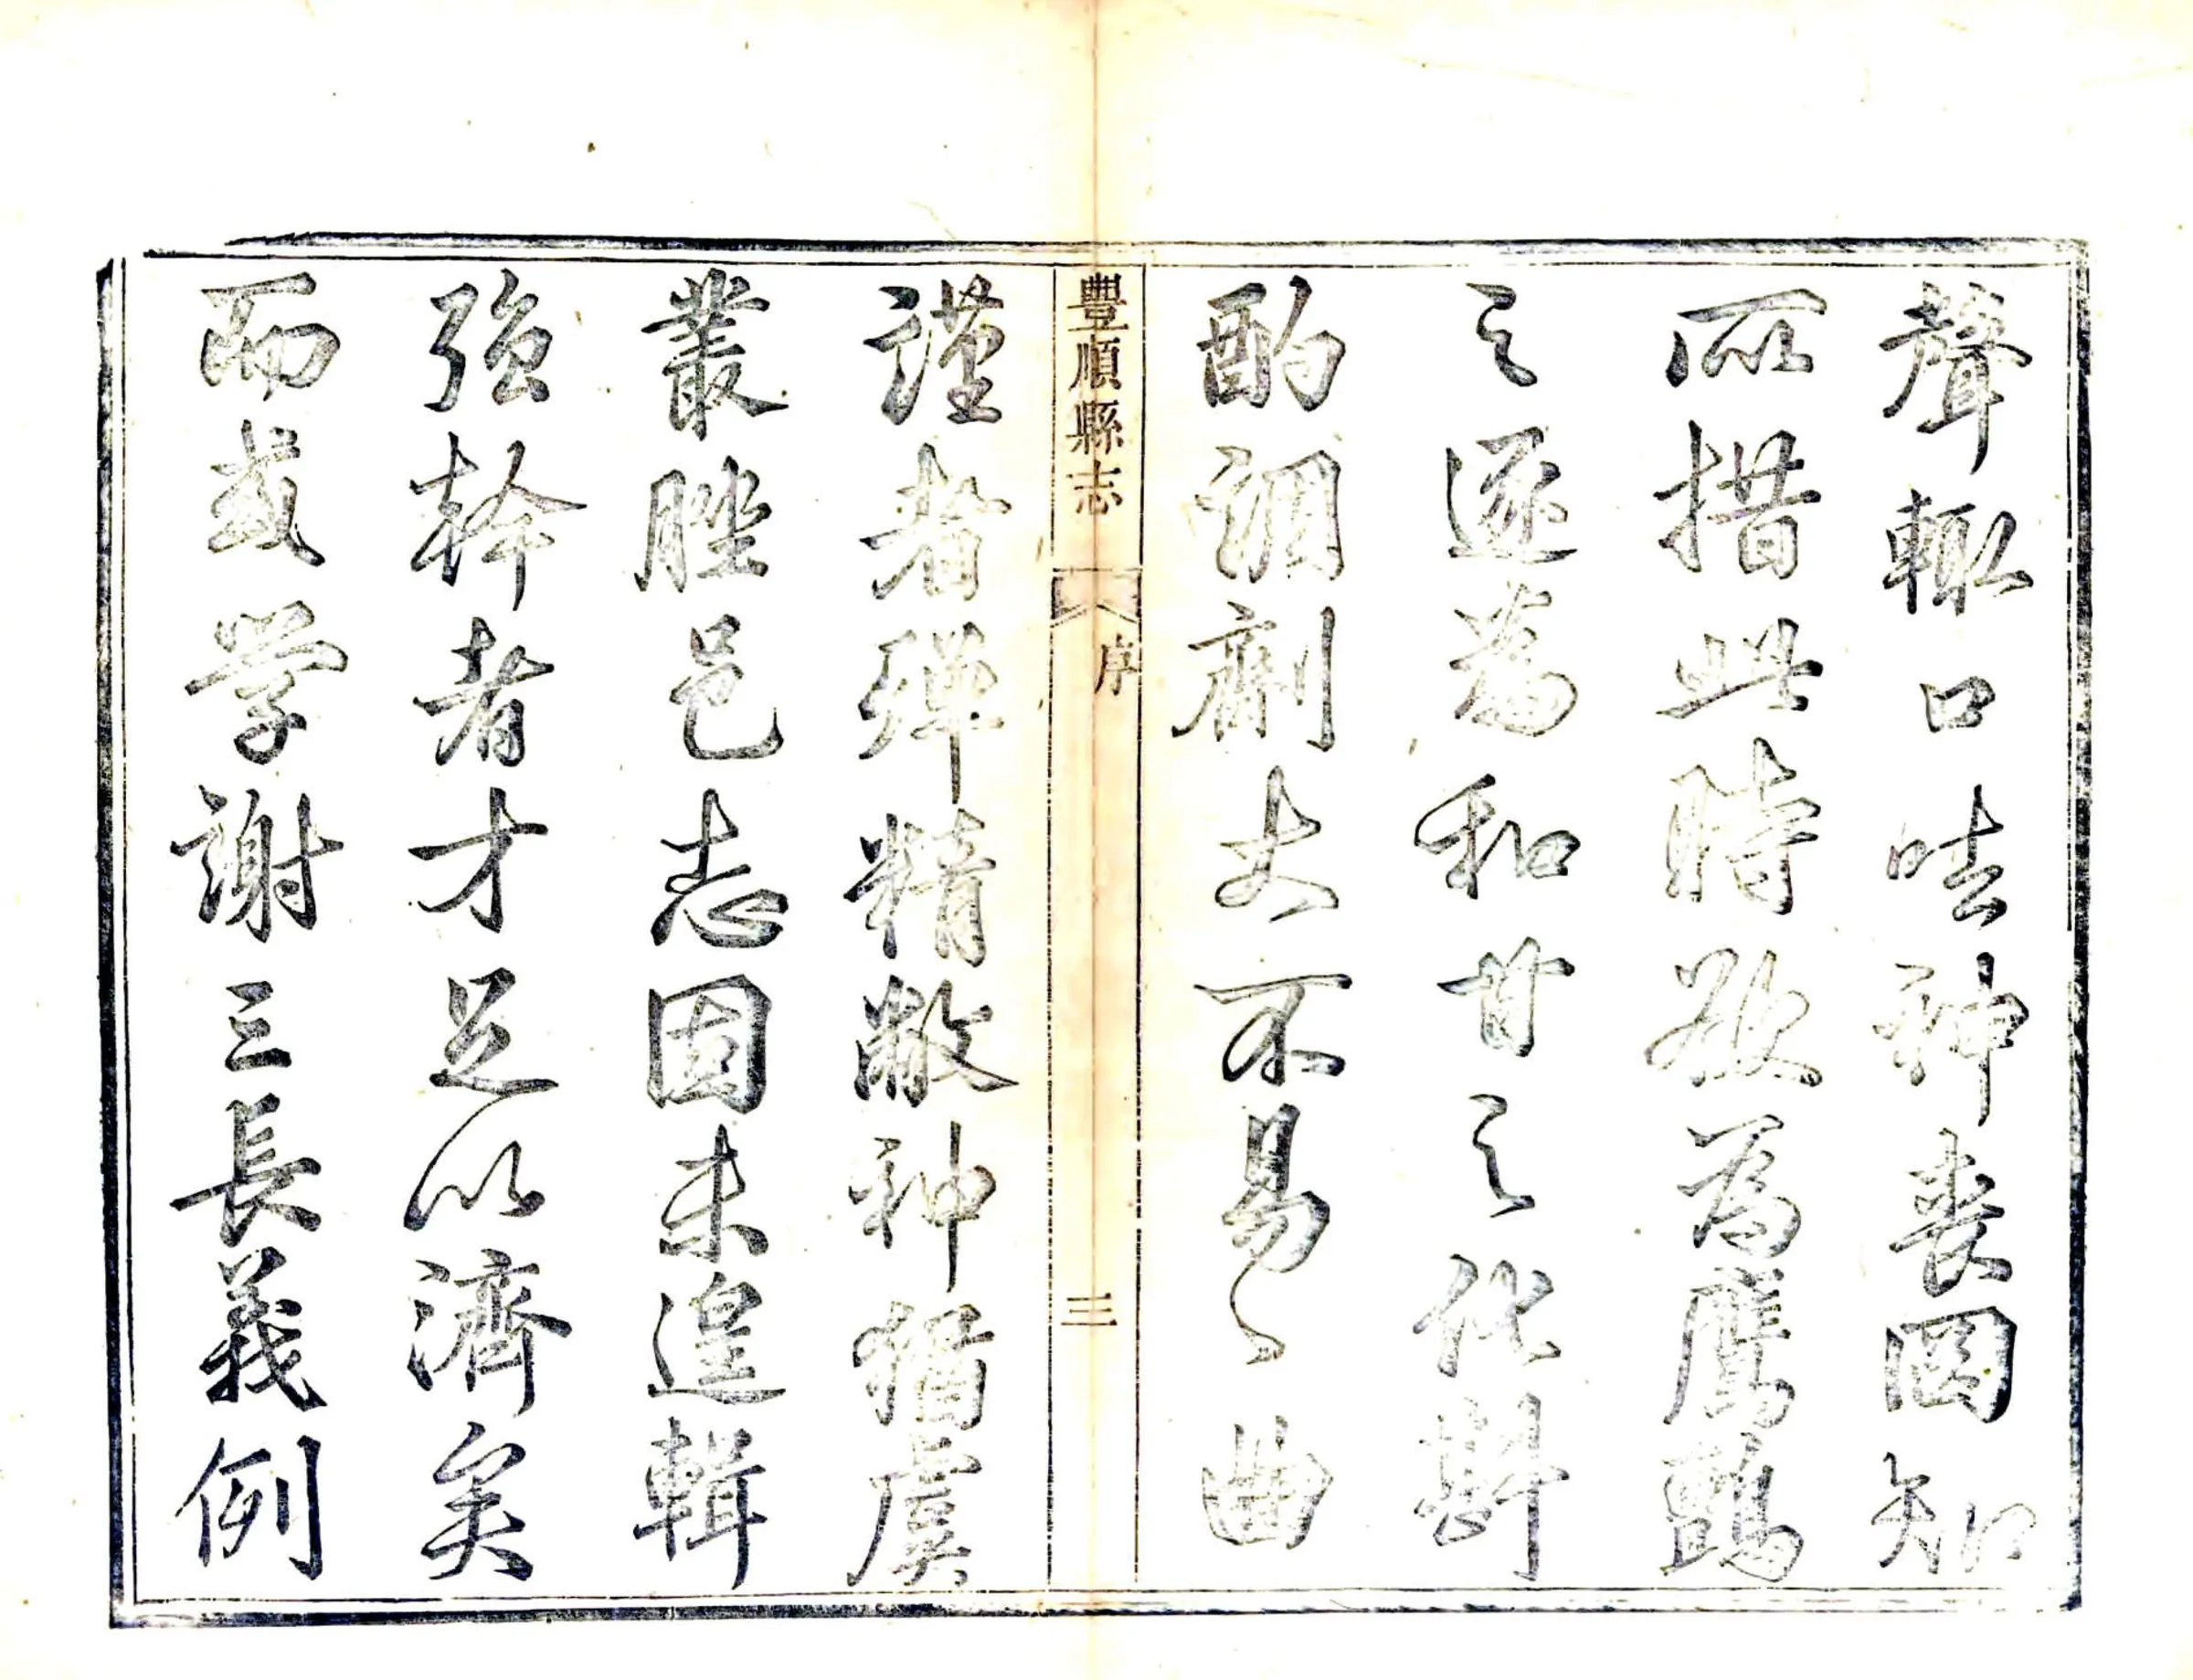 聲輒口呿神喪罔知
所措此時欲為鷹鸇
之逐為和甘之化斟
酌調劑大不易〻曲
豐順縣志 序 三
謹者殫精敝神猶虞
叢脞邑志固未遑輯
強幹者才足以濟矣
而或學謝三長義例